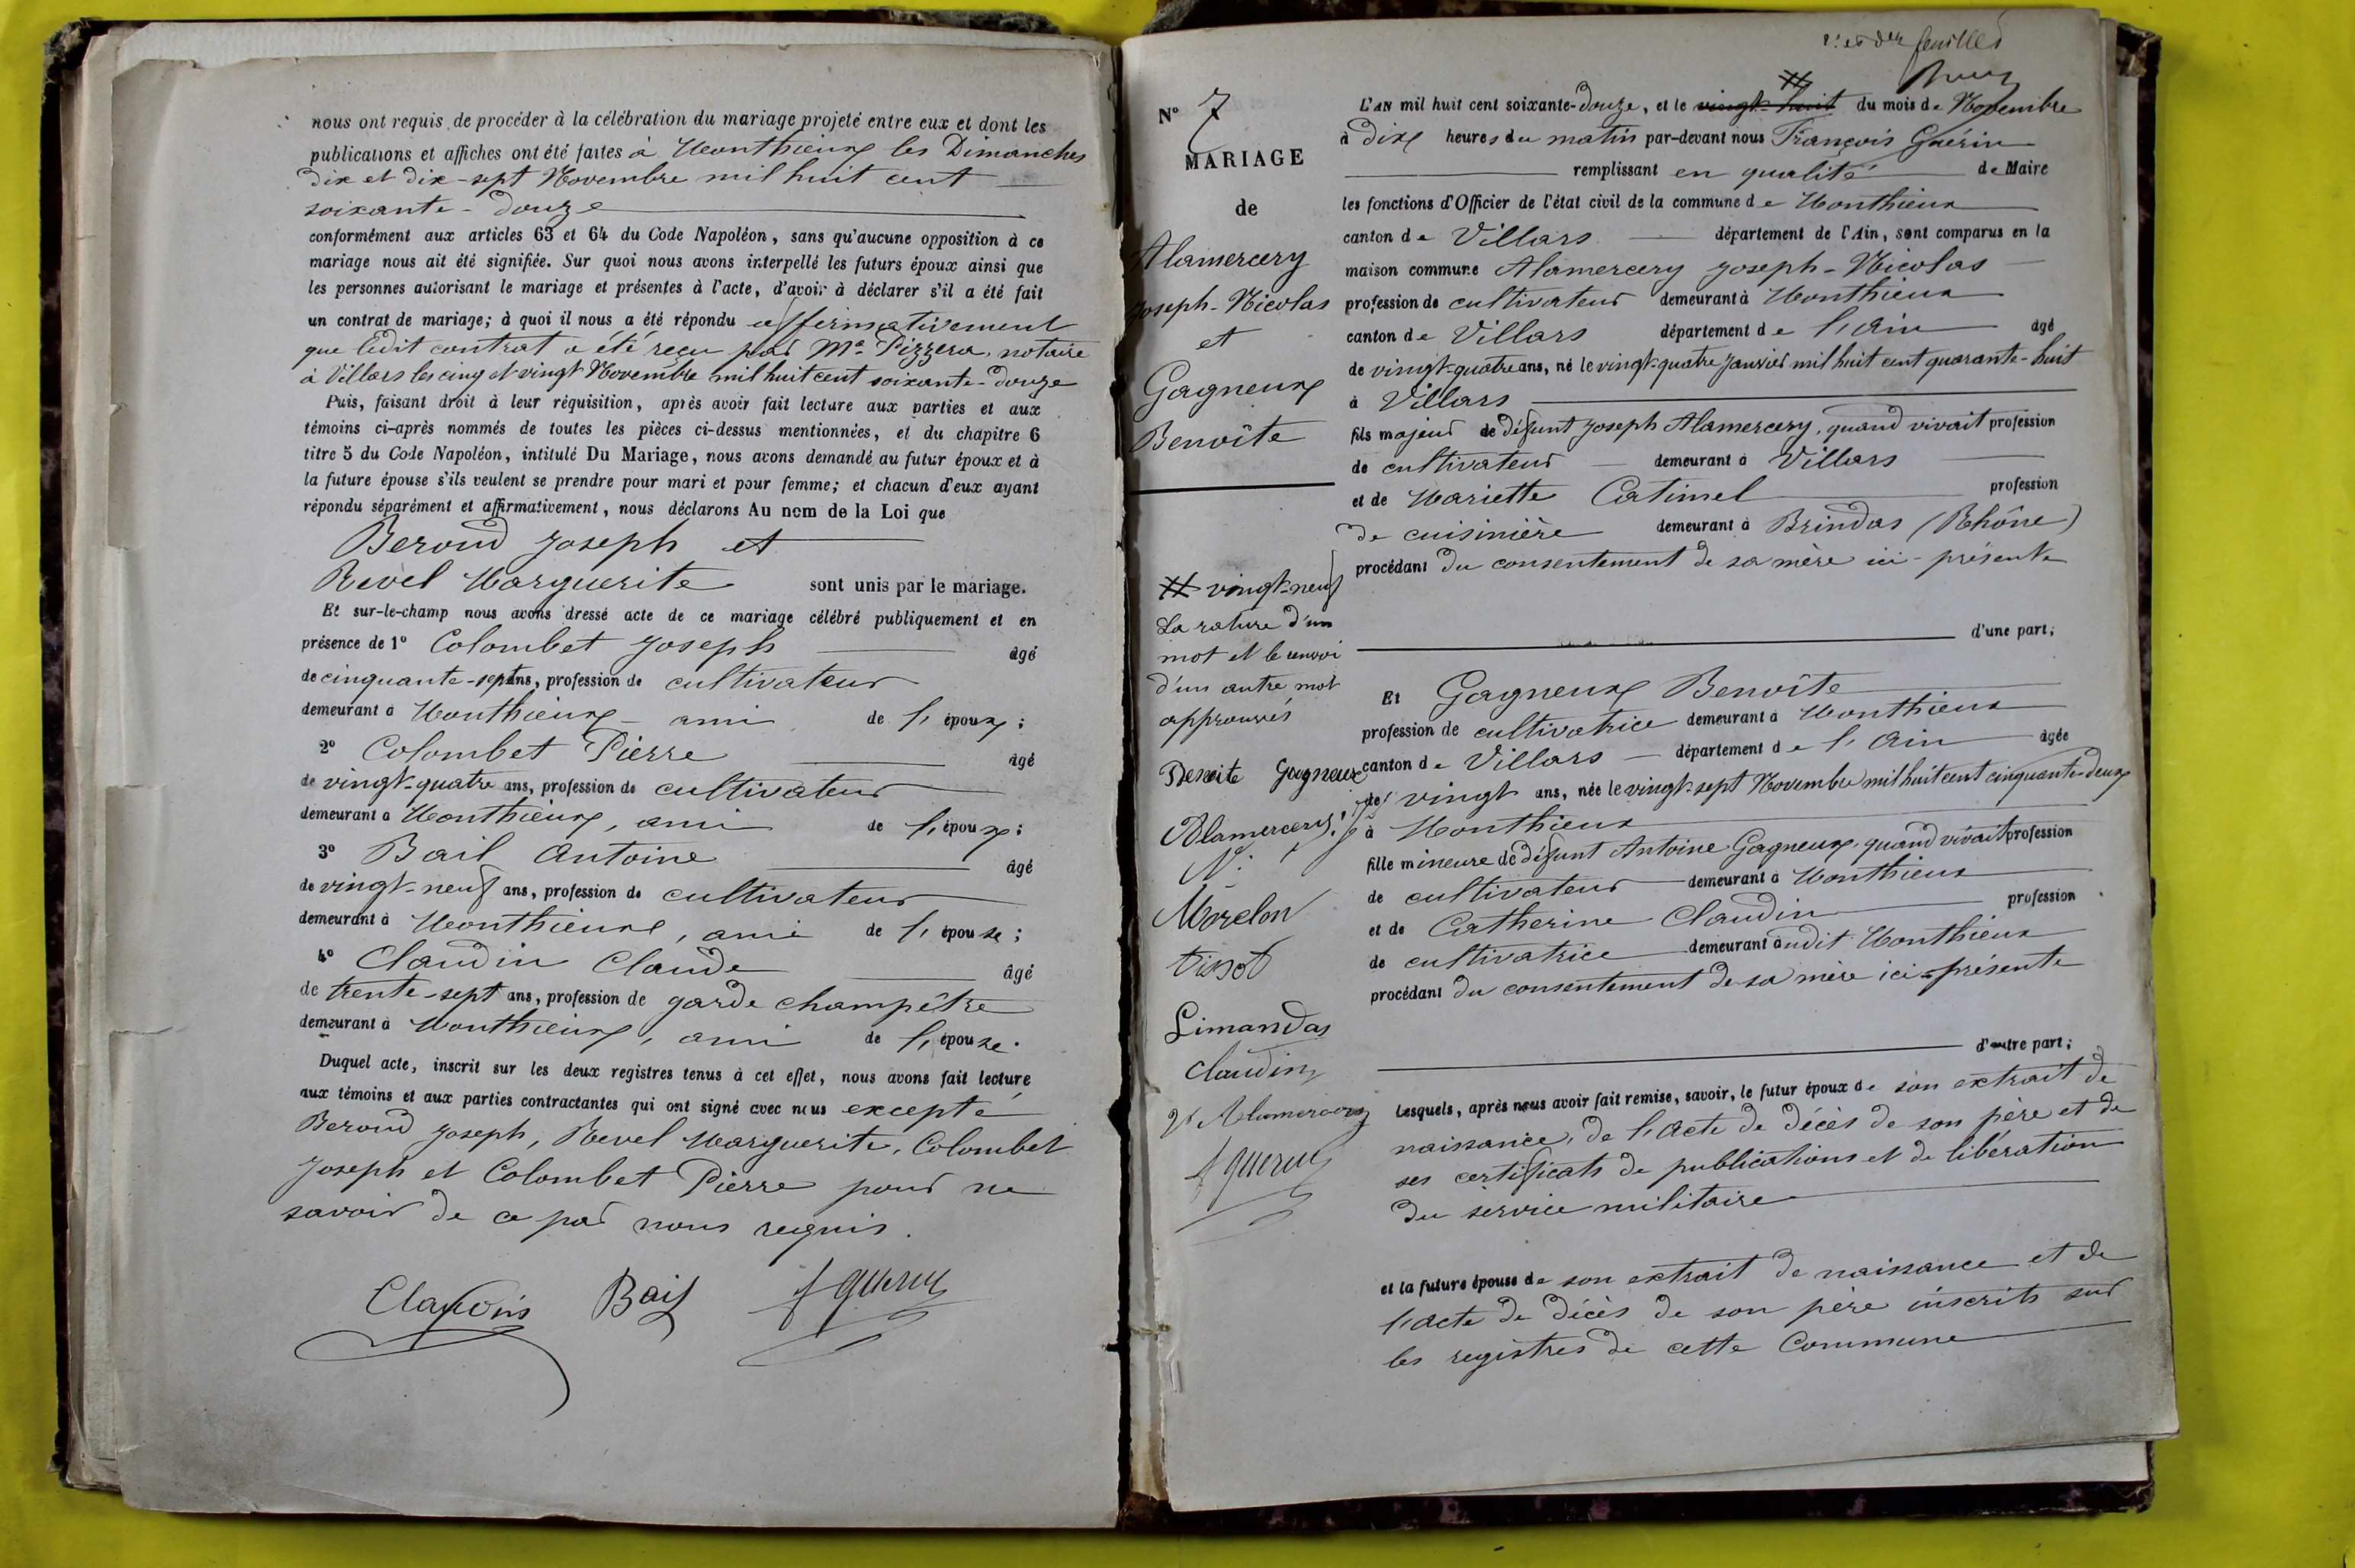 nous ont requis de procéder à la célébration du mariage projeté entre eux et dont les
publications et affiches ont été faites à Monthieux les Dimanches
dix et dix-sept Novembre mil huit cent
soixante-douze
conformément aux articles 63 et 64 du Code Napoléon, sans qu'aucune opposition à ce
mariage nous ait été signifiée. Sur quoi nous avons interpellé les futurs époux ainsi que
les personnes autorisant le mariage et présentes à l'acte, d'avoir à déclarer s'il a été fait
un contrat de mariage; à quoi il nous a été répondu affirmativement
que ledit contrat a été reçu par Me Pizzera, notaire
à Villars les cinq et vingt Novembre mil huit cent soixante-douze
Puis, faisant droit à leur réquisition, après avoir fait lecture aux parties et aux
témoins ci-après nommés de toutes les pièces ci-dessus mentionnées, et du chapitre 6
titre 5 du Code Napoléon, intitulé Du Mariage, nous avons demandé au futur époux et à
la future épouse s'ils veulent se prendre pour mari et pour femme; et chacun d'eux ayant
répondu séparément et affirmativement, nous déclarons Au nom de la Loi que
Beroud Joseph et
Revel Marguerite sont unis par le mariage.
Et sur-le-champ nous avons dressé acte de ce mariage célébré publiquement et en
présence de 1° Colombet Joseph âgé
de cinquante-sept ans, profession de cultivateur
demeurant à Monthieux ami de l'époux;
2° Colombet Pierre âgé
de vingt-quatre ans, profession de cultivateur
demeurant à Monthieux, ami de l'époux;
3° Bail Antoine âgé
de vingt-neuf ans, profession de cultivateur
demeurant à Monthieux, ami de l'épouse;
4° Claudin Claude âgé
de trente-sept ans, profession de garde champêtre
demeurant à Monthieux, ami de l'épouse.
Duquel acte, inscrit sur les deux registres tenus à cet effet, nous avons fait lecture
aux témoins et aux parties contractantes qui ont signé avec nous excepté
Beroud Joseph, Revel Marguerite, Colombet
Joseph et Colombet Pierre pour ne
savoir de ce par nous requis.
Bail f guerin
feuilles
N° 7
MARIAGE
de
Alamercery
Joseph-Nicolas
et
Gagneux
Benoîte
# vingt-neuf
La rature d'un
mot et le renvoi
d'un autre mot
approuvés
Benoite Gagneux
Alamercery
N.
Morelon
tissot
Limandas
Claudin
Alamercery
f guerin
L'AN mil huit cent soixante-douze, et le vingt-huit # du mois de Novembre
à dix heures du matin par-devant nous François Guérin
remplissant en qualité de Maire
les fonctions d'Officier de l'état civil de la commune de Monthieux
canton de Villars département de l'Ain, sont comparus en la
maison commune Alamercery Joseph-Nicolas
profession de cultivateur demeurant à Monthieux
canton de Villars département de l'Ain âgé
de vingt-quatre ans, né le vingt-quatre Janvier mil huit cent quarante-huit
à Villars
fils majeur de défunt Joseph Alamercery, quand vivait profession
de cultivateur demeurant à Villars
et de Mariette Catimel profession
de cuisinière demeurant à Brindas (Rhône)
procédant du consentement de sa mère ici-présente
d'une part;
Et Gagneux Benoîte
profession de cultivatrice demeurant à Monthieux
canton de Villars département de l'Ain âgée
de vingt ans, née le vingt-sept Novembre mil huit cent cinquante-deux
à Monthieux
fille mineure de défunt Antoine Gagneux, quand vivait profession
de cultivateur demeurant à Monthieux
et de Catherine Claudin profession
de cultivatrice demeurant audit Monthieux
procédant du consentement de sa mère ici-présente
d'autre part;
Lesquels, après nous avoir fait remise, savoir, le futur époux de son extrait de
naissance, de l'acte de décès de son père et de
ses certificats de publications et de libération
du service militaire
et la future épouse de son extrait de naissance et de
l'acte de décès de son père inscrits sur
les registres de cette Commune